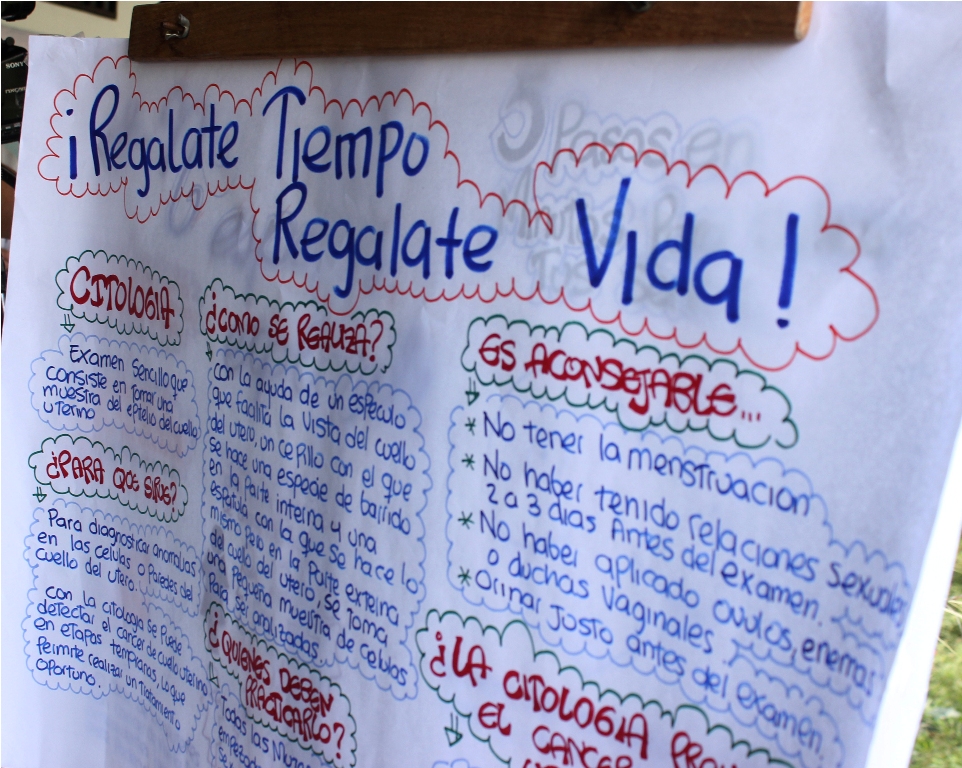 ¡Regalate Tiempo
Regalate Vida!
CITOLOGIA
Examen Sencillo que
consiste en Tomar una
muestra del epitelio del cuello
uterino
¿PARA QUE SIRVE?
Para diagnosticar anomalias
en las celulas o Paredes del
cuello del utero.
con la citologia se Puede
detectar el cancer de cuello uterino
en etapas tempranas, lo que
Permite realizar un Tratamiento
Oportuno
¿COMO SE REALIZA?
con la ayuda de un especulo
que facilita la Vista del cuello
del utero, un cepillo con el que
se hace una especie de barrido
en la Parte interna y una
espatula con la que se hace lo
mismo pero en la Parte externa
del cuello del utero, se Toma
una Pequeña muestra de celulas
Para ser analizadas
¿QUIENES DEBEN
PRACTICARLO?
Todas las
ES ACONSEJABLE...
* No tener la menstruacion
* No haber tenido relaciones sexuales
2 a 3 dias Antes del examen.
* No haber aplicado ovulos, enemas
o duchas Vaginales
* Orinar Justo antes del examen.
¿LA CITOLOGIA
EL CANCER
5 Pasos en
SONY